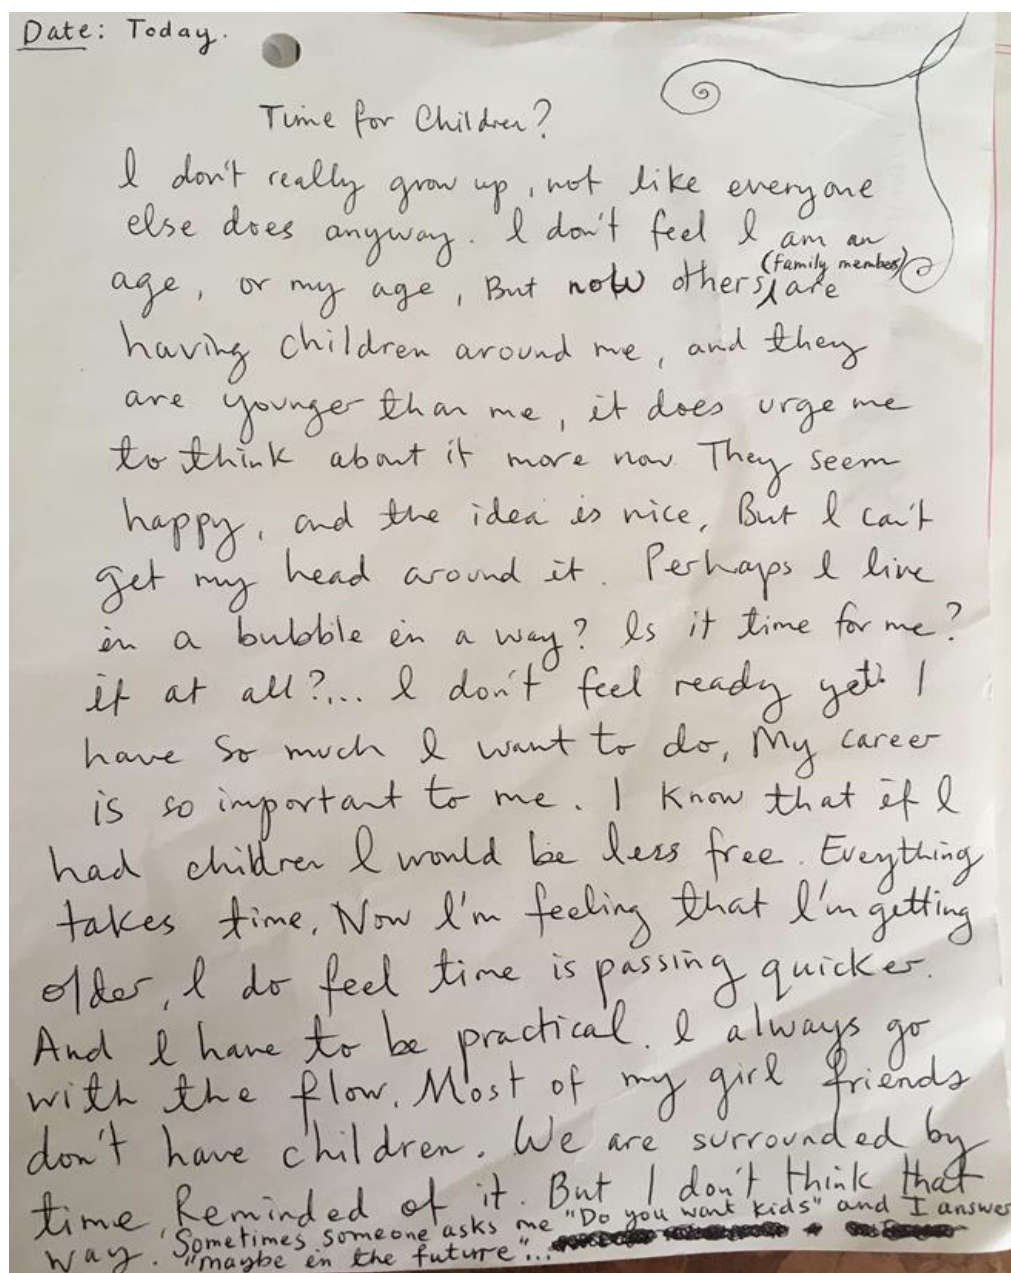 Date: Today.
Time for Children?
I don't really grow up, not like everyone
else does anyway. I don't feel I am an
(family members)
age, or my age, But now others are
having children around me, and they
are younger than me, it does urge me
to think about it more now. They seem
happy, and the idea is nice, But I can't
get my head around it. Perhaps I live
in a bubble in a way? Is it time for me?
if at all?... I don't feel ready yet. I
have so much I want to do, My career
is so important to me. I know that if I
had children I would be less free. Everything
takes time. Now I'm feeling that I'm getting
older, I do feel time is passing quicker.
And I have to be practical. I always go
with the flow. Most of my girl friends
don't have children. We are surrounded by
time, Reminded of it. But I don't think that
way. Sometimes someone asks me "Do you want kids" and I answer
"maybe in the future"...